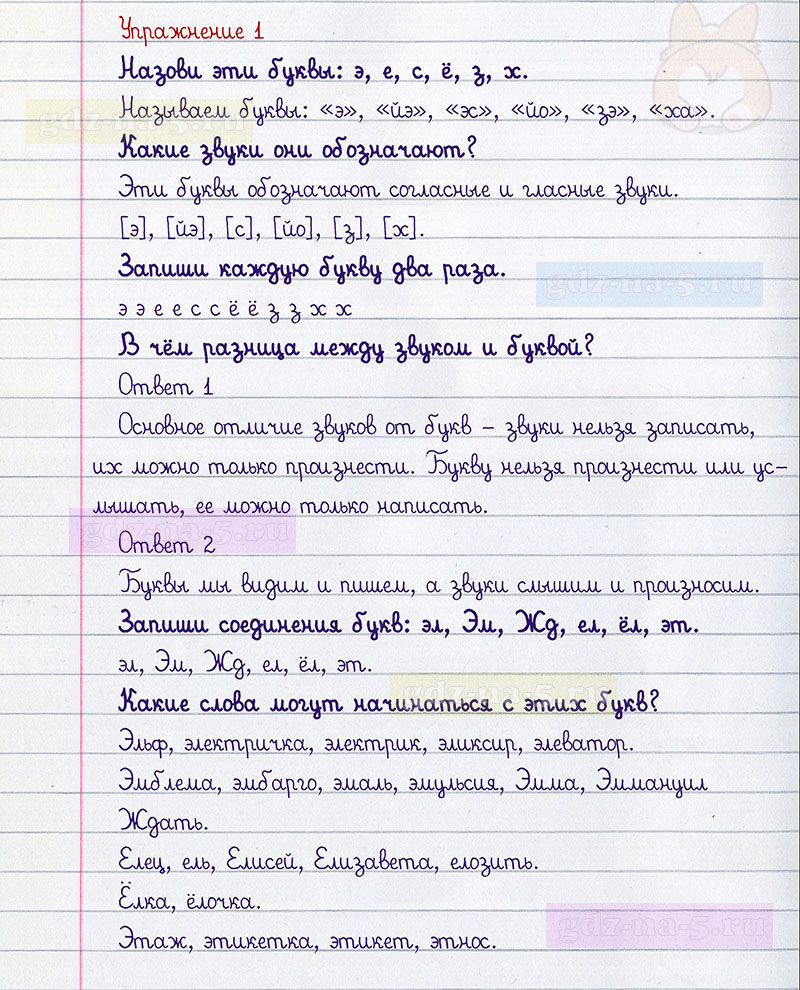 Упражнение 1
Назови эти буквы: э, е, с, ё, з, х.
Называем буквы: «э», «йэ», «эс», «йо», «зэ», «ха».
gdz-na-5.ru
Какие звуки они обозначают?
Эти буквы обозначают согласные и гласные звуки.
[э], [йэ], [с], [йо], [з], [х].
Запиши каждую букву два раза.
gdz-na-5.ru
э э е е с с ё ё з з х х
В чём разница между звуком и буквой?
Ответ 1
Основное отличие звуков от букв – звуки нельзя записать,
их можно только произнести. Букву нельзя произнести или ус-
лышать, ее можно только написать.
gdz-na-5.ru
Ответ 2
Буквы мы видим и пишем, а звуки слышим и произносим.
Запиши соединения букв: эл, Эм, Жд, ел, ёл, эт.
эл, Эм, Жд, ел, ёл, эт.
gdz-na-5.ru
Какие слова могут начинаться с этих букв?
Эльф, электричка, электрик, эликсир, элеватор.
Эмблема, эмбарго, эмаль, эмульсия, Эмма, Эммануил
Ждать.
Елец, ель, Елисей, Елизавета, елозить.
Ёлка, ёлочка.
gdz-na-5.ru
Этаж, этикетка, этикет, этнос.